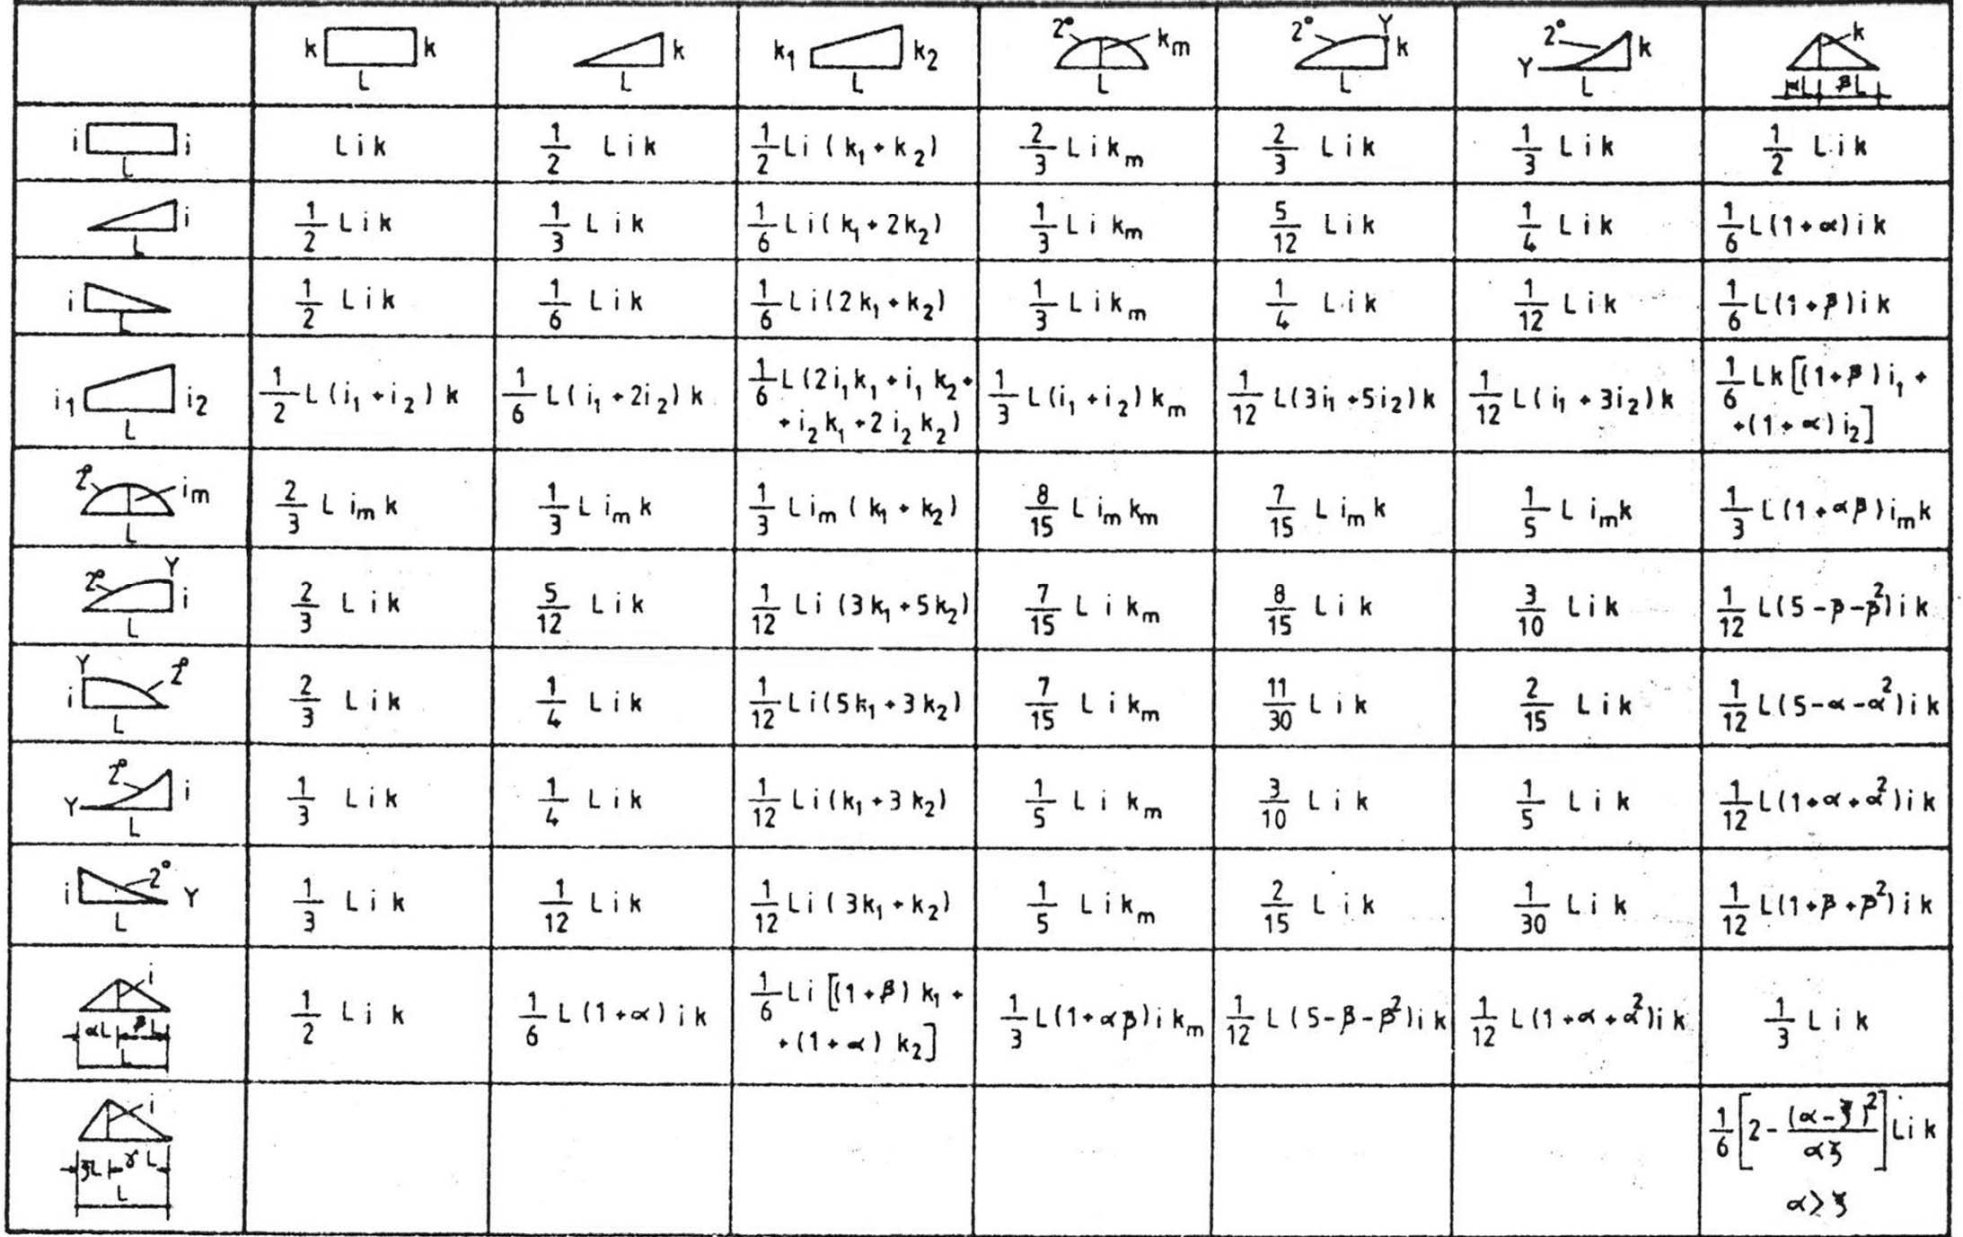 k k L
k L
k₁ k₂ L
2° kₘ L
2° Y k L
Y 2° k L
k αL βL
i i L
Lik
1/2 Lik
1/2 Li (k₁+k₂)
2/3 Likₘ
2/3 Lik
1/3 Lik
1/2 Lik
i L
1/2 Lik
1/3 Lik
1/6 Li(k₁+2k₂)
1/3 Likₘ
5/12 Lik
1/4 Lik
1/6 L(1+α)ik
i L
1/2 Lik
1/6 Lik
1/6 Li(2k₁+k₂)
1/3 Likₘ
1/4 Lik
1/12 Lik
1/6 L(1+β)ik
i₁ i₂ L
1/2 L(i₁+i₂)k
1/6 L(i₁+2i₂)k
1/6 L(2i₁k₁+i₁k₂+
+i₂k₁+2i₂k₂)
1/3 L(i₁+i₂)kₘ
1/12 L(3i₁+5i₂)k
1/12 L(i₁+3i₂)k
1/6 Lk[(1+β)i₁+
+(1+α)i₂]
2° iₘ L
2/3 Liₘk
1/3 Liₘk
1/3 Liₘ(k₁+k₂)
8/15 Liₘkₘ
7/15 Liₘk
1/5 Liₘk
1/3 L(1+αβ)iₘk
2° Y i L
2/3 Lik
5/12 Lik
1/12 Li(3k₁+5k₂)
7/15 Likₘ
8/15 Lik
3/10 Lik
1/12 L(5-β-β²)ik
Y i 2° L
2/3 Lik
1/4 Lik
1/12 Li(5k₁+3k₂)
7/15 Likₘ
11/30 Lik
2/15 Lik
1/12 L(5-α-α²)ik
Y 2° i L
1/3 Lik
1/4 Lik
1/12 Li(k₁+3k₂)
1/5 Likₘ
3/10 Lik
1/5 Lik
1/12 L(1+α+α²)ik
i 2° Y L
1/3 Lik
1/12 Lik
1/12 Li(3k₁+k₂)
1/5 Likₘ
2/15 Lik
1/30 Lik
1/12 L(1+β+β²)ik
i αL βL L
1/2 Lik
1/6 L(1+α)ik
1/6 Li[(1+β)k₁+
+(1+α)k₂]
1/3 L(1+αβ)ikₘ
1/12 L(5-β-β²)ik
1/12 L(1+α+α²)ik
1/3 Lik
i ξL γL L
1/6 [2-(α-ξ)²/αξ] Lik
α>ξ